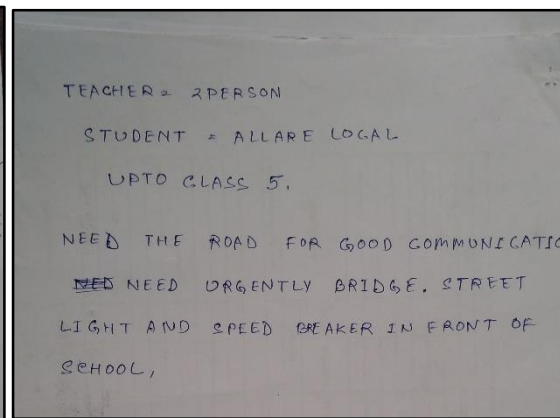 TEACHER = 2PERSON
STUDENT = ALLARE LOCAL
UPTO CLASS 5.
NEED THE ROAD FOR GOOD COMMUNICATIO
NEED URGENTLY BRIDGE. STREET
LIGHT AND SPEED BREAKER IN FRONT OF
SCHOOL,